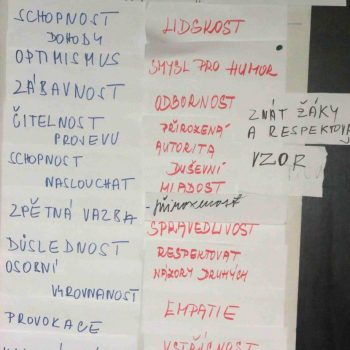 SCHOPNOST
DOHODY
OPTIMISMUS
ZÁBAVNOST
ČITELNOST
PROJEVU
SCHOPNOST
NASLOUCHAT
ZPĚTNÁ VAZBA
DŮSLEDNOST
OSOBNÍ
VYROVNANOST
PROVOKACE
LIDSKOST
SMYSL PRO HUMOR
ODBORNOST
PŘIROZENÁ
AUTORITA
DUŠEVNÍ
MLADOST
-přirozenost
SPRAVEDLIVOST
RESPEKTOVAT
NÁZORY DRUHÝCH
EMPATIE
VSTŘÍCNOST
ZNÁT ŽÁKY
A RESPEKTOVA
VZOR